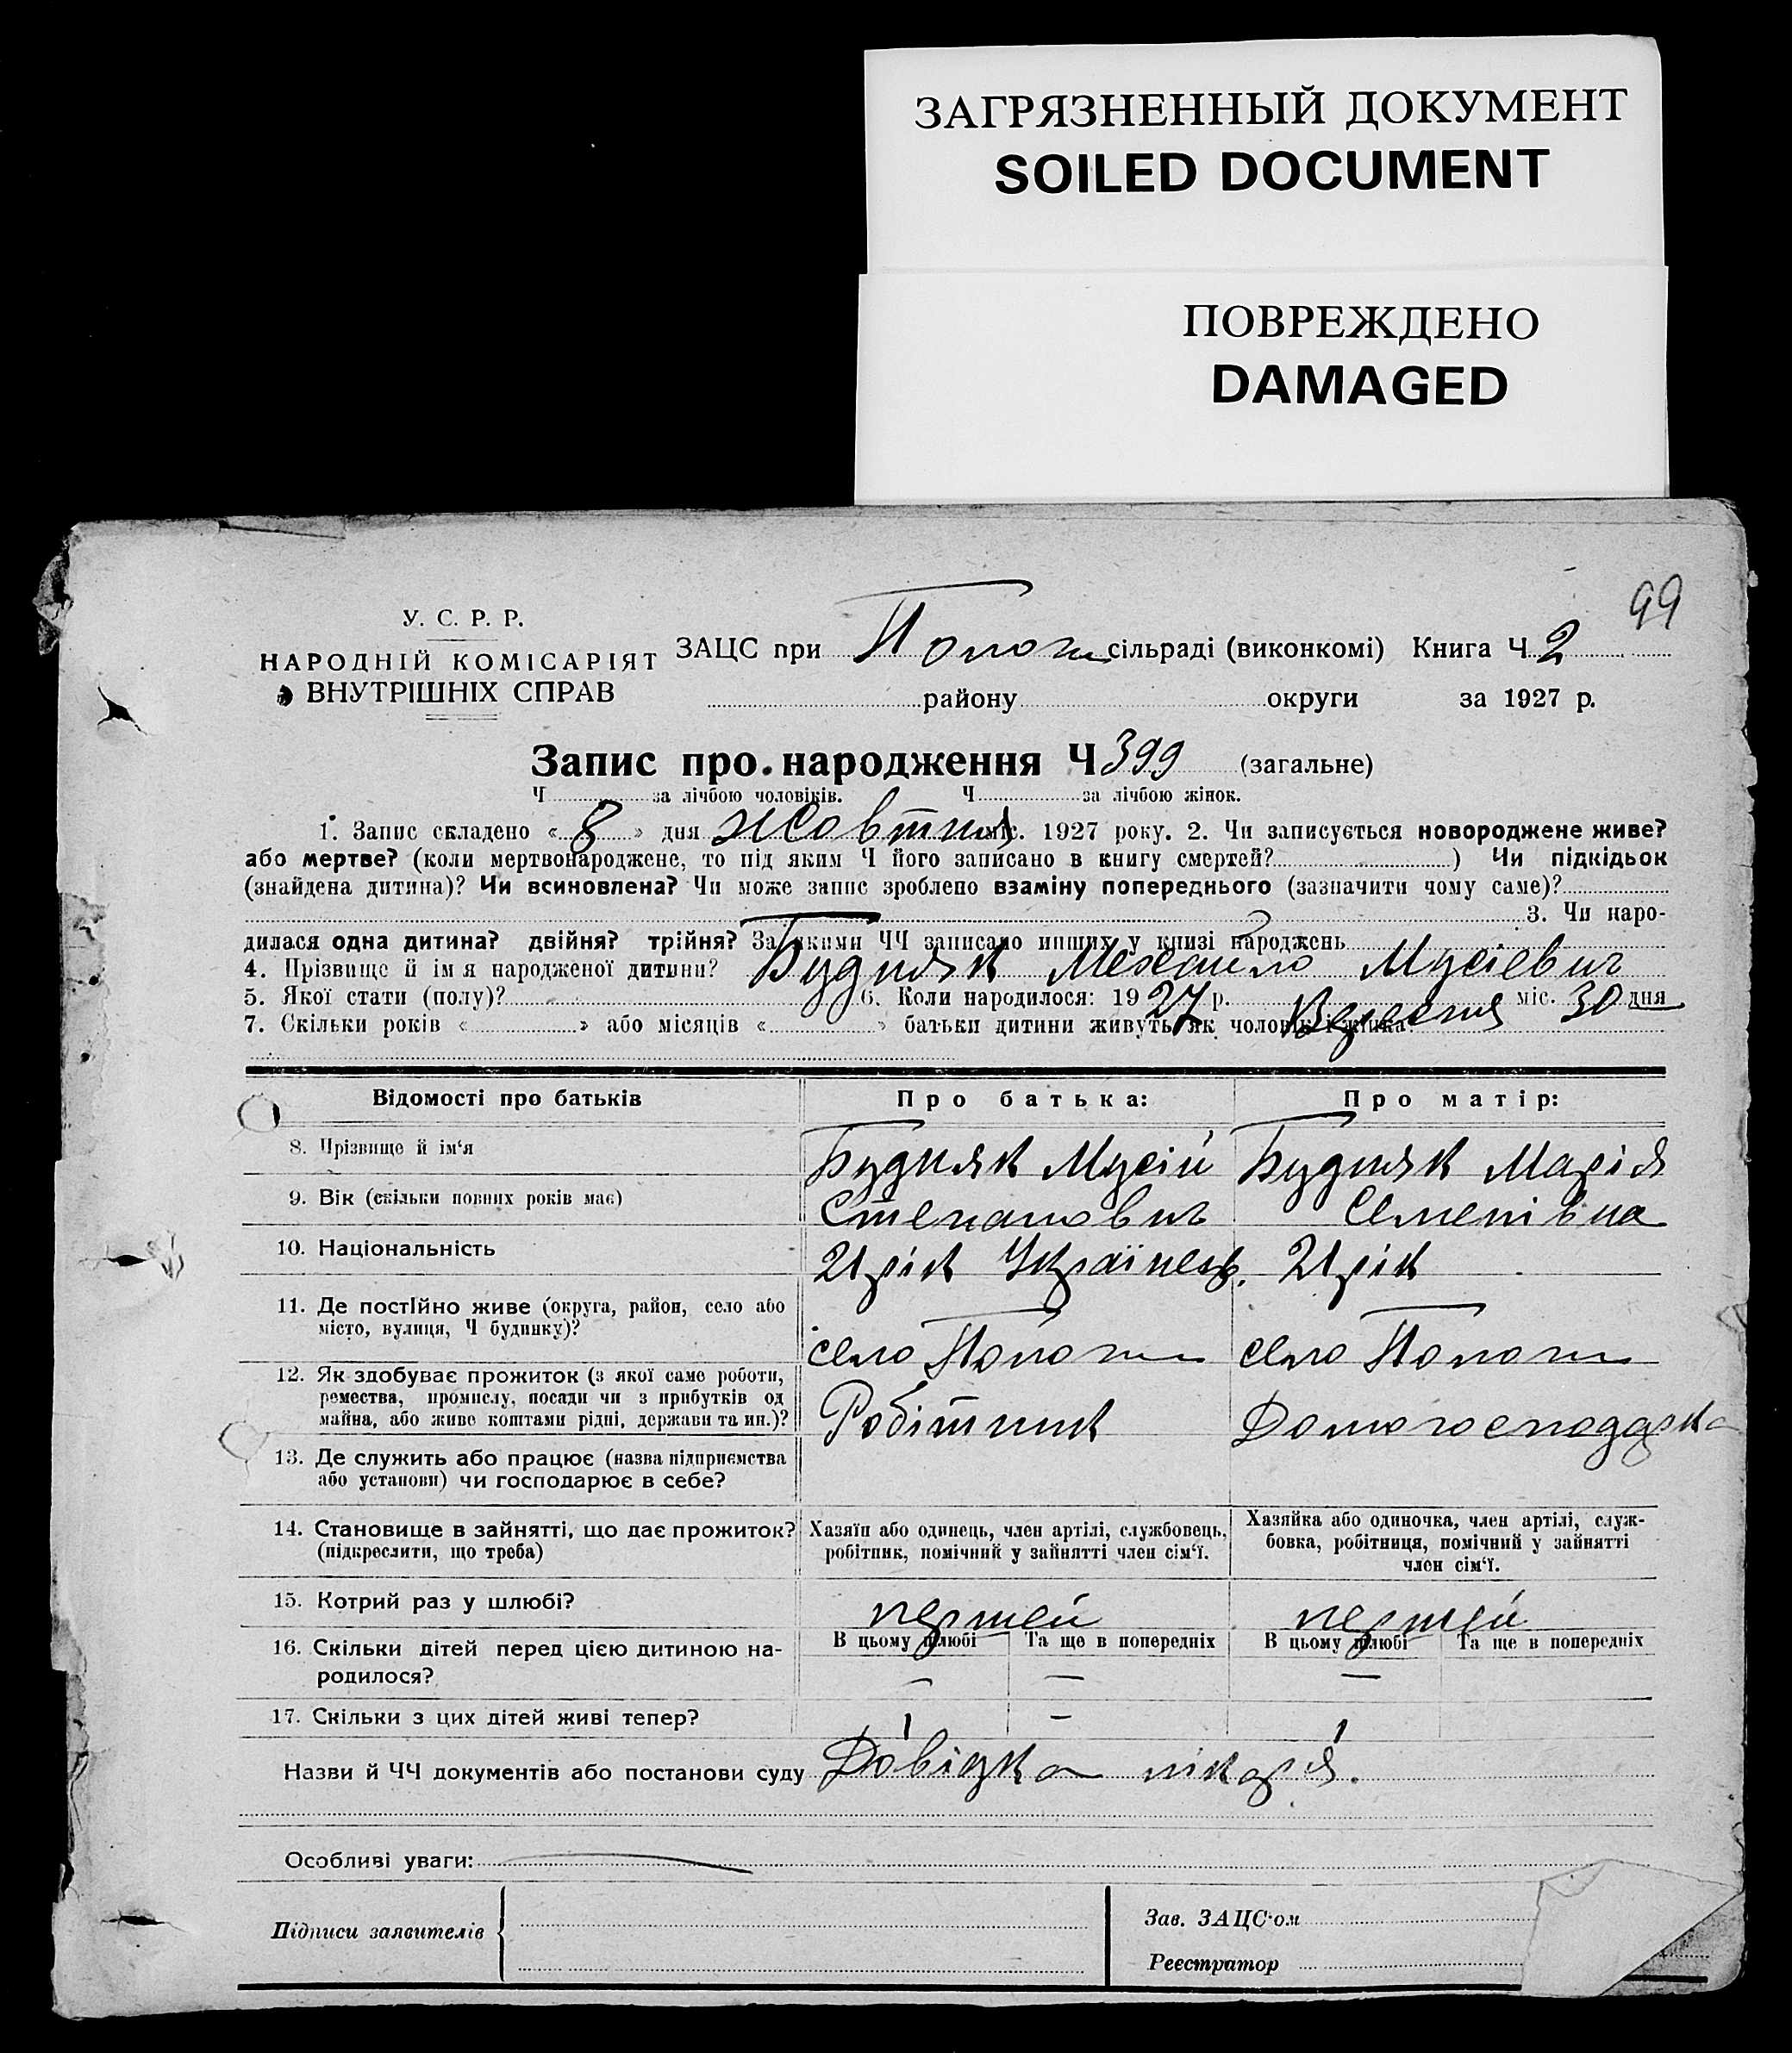 ЗАГРЯЗНЕННЫЙ ДОКУМЕНТ
SOILED DOCUMENT
ПОВРЕЖДЕНО
DAMAGED
99
У. С. Р. Р.
НАРОДНІЙ КОМІСАРІЯТ
ВНУТРІШНІХ СПРАВ
ЗАЦС при Пологи сільраді (виконкомі) Книга Ч. 2
району округи за 1927 р.
Запис про народження Ч 399 (загальне)
Ч за лічбою чоловіків. Ч за лічбою жінок.
1. Запис складено « 8 » дня Жовтня міс. 1927 року. 2. Чи записується новороджене живе?
або мертве? (коли мертвонароджене, то під яким Ч його записано в книгу смертей? ) Чи підкідьок
(знайдена дитина)? Чи всиновлена? Чи може запис зроблено взаміну попереднього (зазначити чому саме)?
3. Чи наро-
дилася одна дитина? двійня? трійня? За якими ЧЧ записано инших у книзі народжень
4. Прізвище й ім'я народженої дитини? Будняк Механло Мусієвич
5. Якої стати (полу)? 6. Коли народилося: 1927 р. Вересня міс. 30 дня
7. Скільки років « » або місяців « » батьки дитини живуть як чоловік і жінка
Відомості про батьків Про батька: Про матір:
8. Прізвище й ім'я Будняк Мусій Будняк Марія
9. Вік (скільки повних років має) Степанович Семенівна
10. Національність 21 рік Українець. 21 рік
11. Де постійно живе (округа, район, село або
місто, вулиця, Ч будинку)? село Пологи село Пологи
12. Як здобуває прожиток (з якої саме роботи,
ремества, промислу, посади чи з прибутків од
майна, або живе коштами рідні, держави та ин.)? Робітник Домогосподарка
13. Де служить або працює (назва підприємства
або установи) чи господарює в себе?
14. Становище в зайнятті, що дає прожиток?
(підкреслити, що треба)
Хазяїн або одинець, член артілі, службовець,
робітник, помічний у зайнятті член сім'ї.
Хазяйка або одиночка, член артілі, служ-
бовка, робітниця, помічний у зайнятті
член сім'ї.
15. Котрий раз у шлюбі? першей першей
16. Скільки дітей перед цією дитиною на-
родилося?
В цьому шлюбі Та ще в попередніх В цьому шлюбі Та ще в попередніх
— — —
17. Скільки з цих дітей живі тепер? 1 — 1
Назви й ЧЧ документів або постанови суду Довідка лікаря.
Особливі уваги:
Підписи заявителів
Зав. ЗАЦС'ом
Реестратор